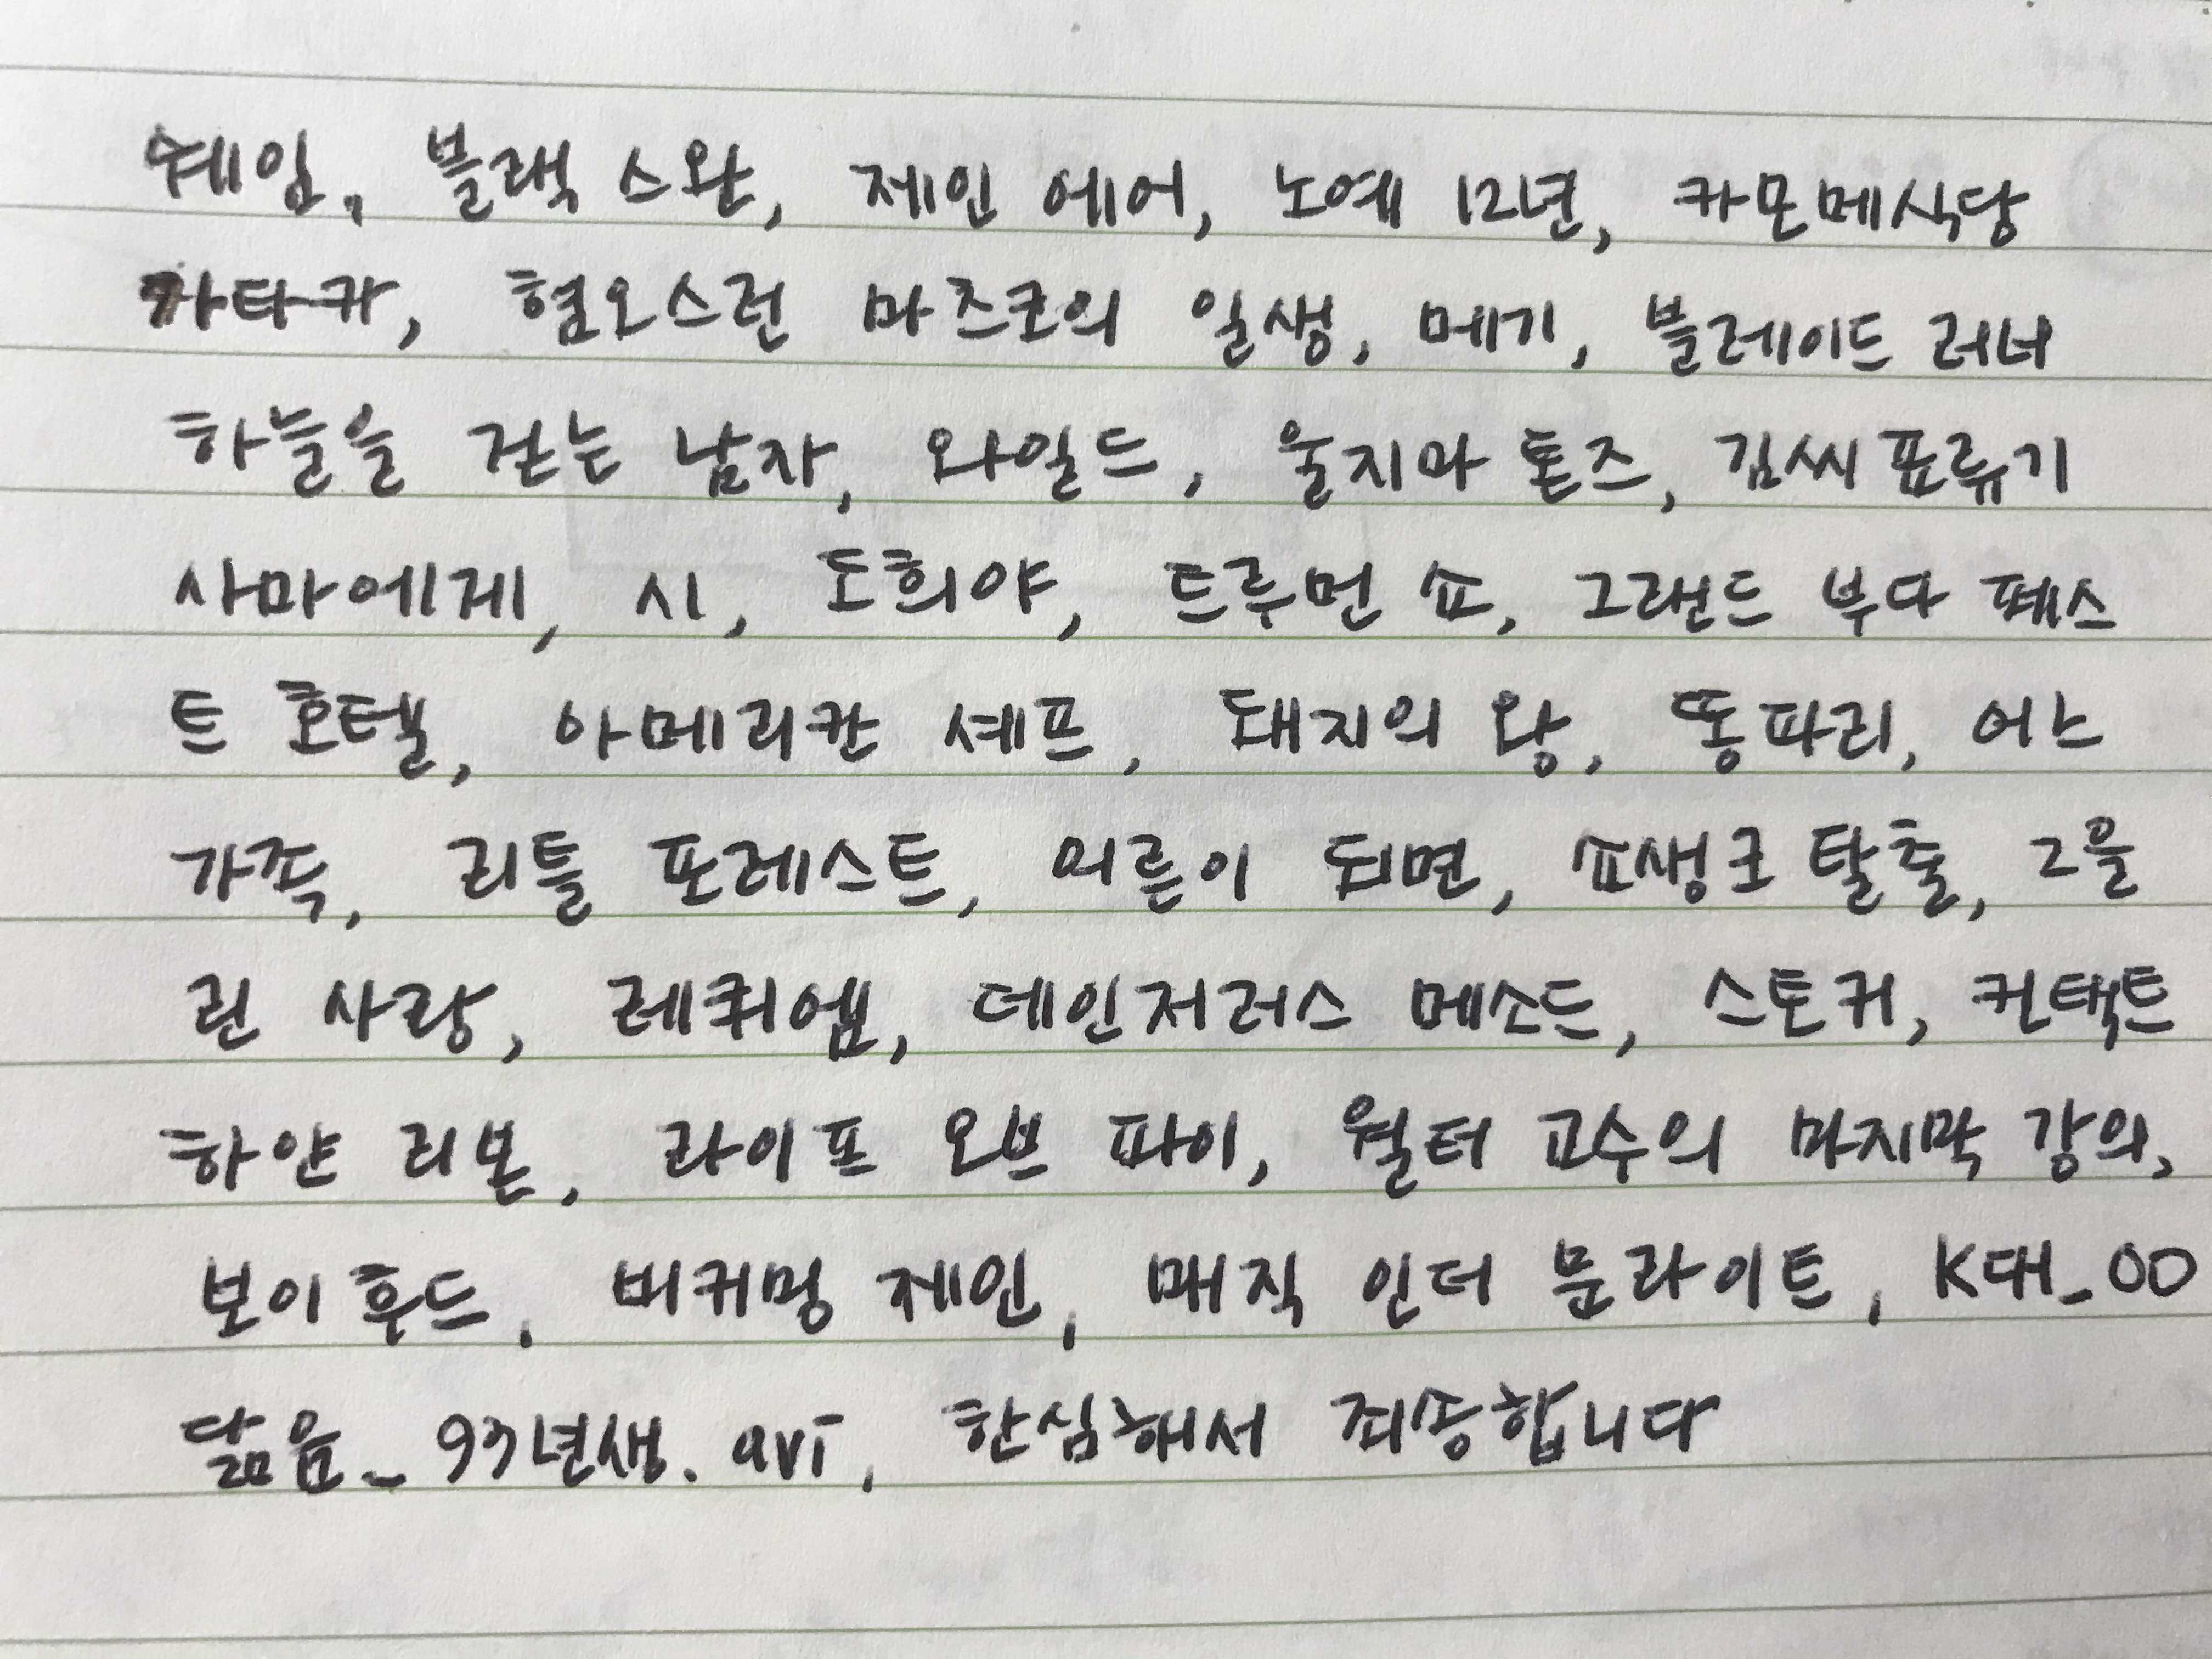 쉐임, 블랙 스완, 제인 에어, 노예 12년, 카모메식당
가타카, 혐오스런 마츠코의 일생, 메기, 블레이드 러너
하늘을 걷는 남자, 와일드, 울지마 톤즈, 김씨표류기
사마에게, 시, 도희야, 트루먼 쇼, 그랜드 부다 페스
트 호텔, 아메리칸 셰프, 돼지의 왕, 똥파리, 어느
가족, 리틀 포레스트, 어른이 되면, 쇼생크 탈출, 그을
린 사랑, 레퀴엠, 데인저러스 메소드, 스토커, 컨택트
하얀 리본, 라이프 오브 파이, 월터 교수의 마지막 강의,
보이 후드, 비커밍 제인, 매직 인더 문라이트, K대_OO
닮음_93년생.avi, 한심해서 죄송합니다